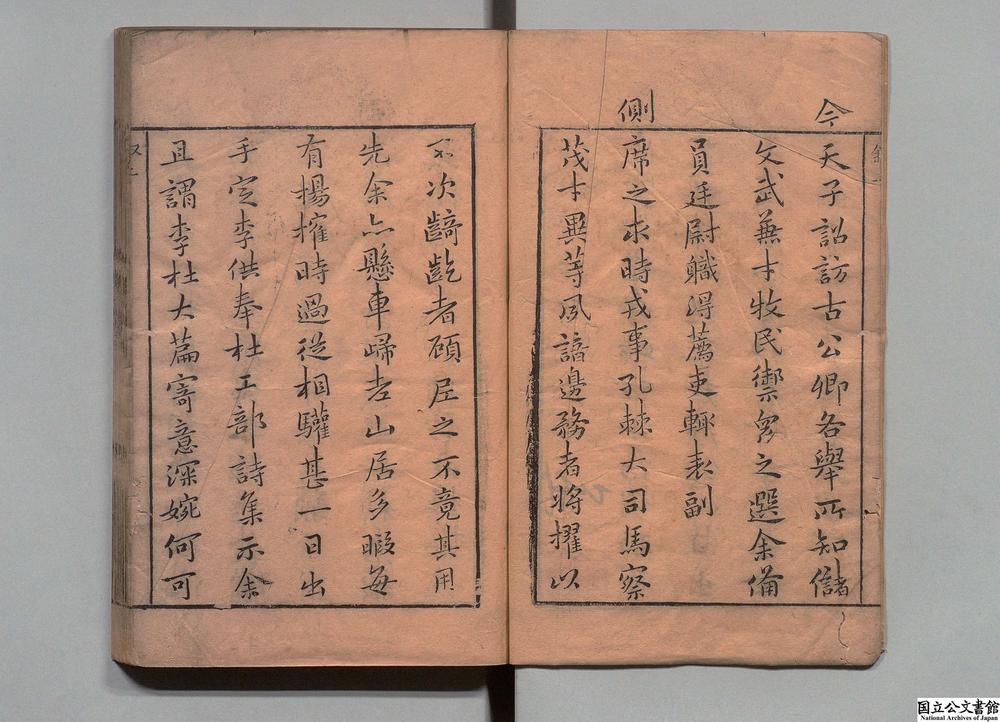 今
天子詔訪古公卿各舉所知儲
文武兼才牧民禦衆之選余備
員廷尉職得薦吏輒表副
側
席之求時戎事孔棘大司馬察
茂才異等夙諳邊務者將擢以
不次齮齕者頎厄之不竟其用
先余亦懸車歸老山居多暇每
有揚搉時過從相驩甚一日出
手定李供奉杜工部詩集示余
且謂李杜大篇寄意深婉何可
国立公文書館
National Archives of Japan